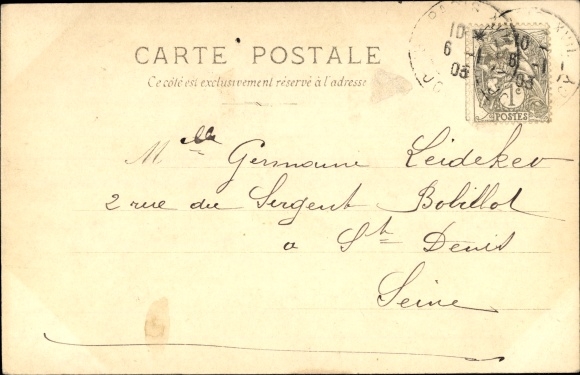 CARTE POSTALE
Ce côté est exclusivement réservé à l'adresse
PARIS
10
6 -1
03
10
6 -1
03
1c
POSTES
Mlle Germaine Leideker
2 rue du Sergent Bobillot
a St Denis
Seine